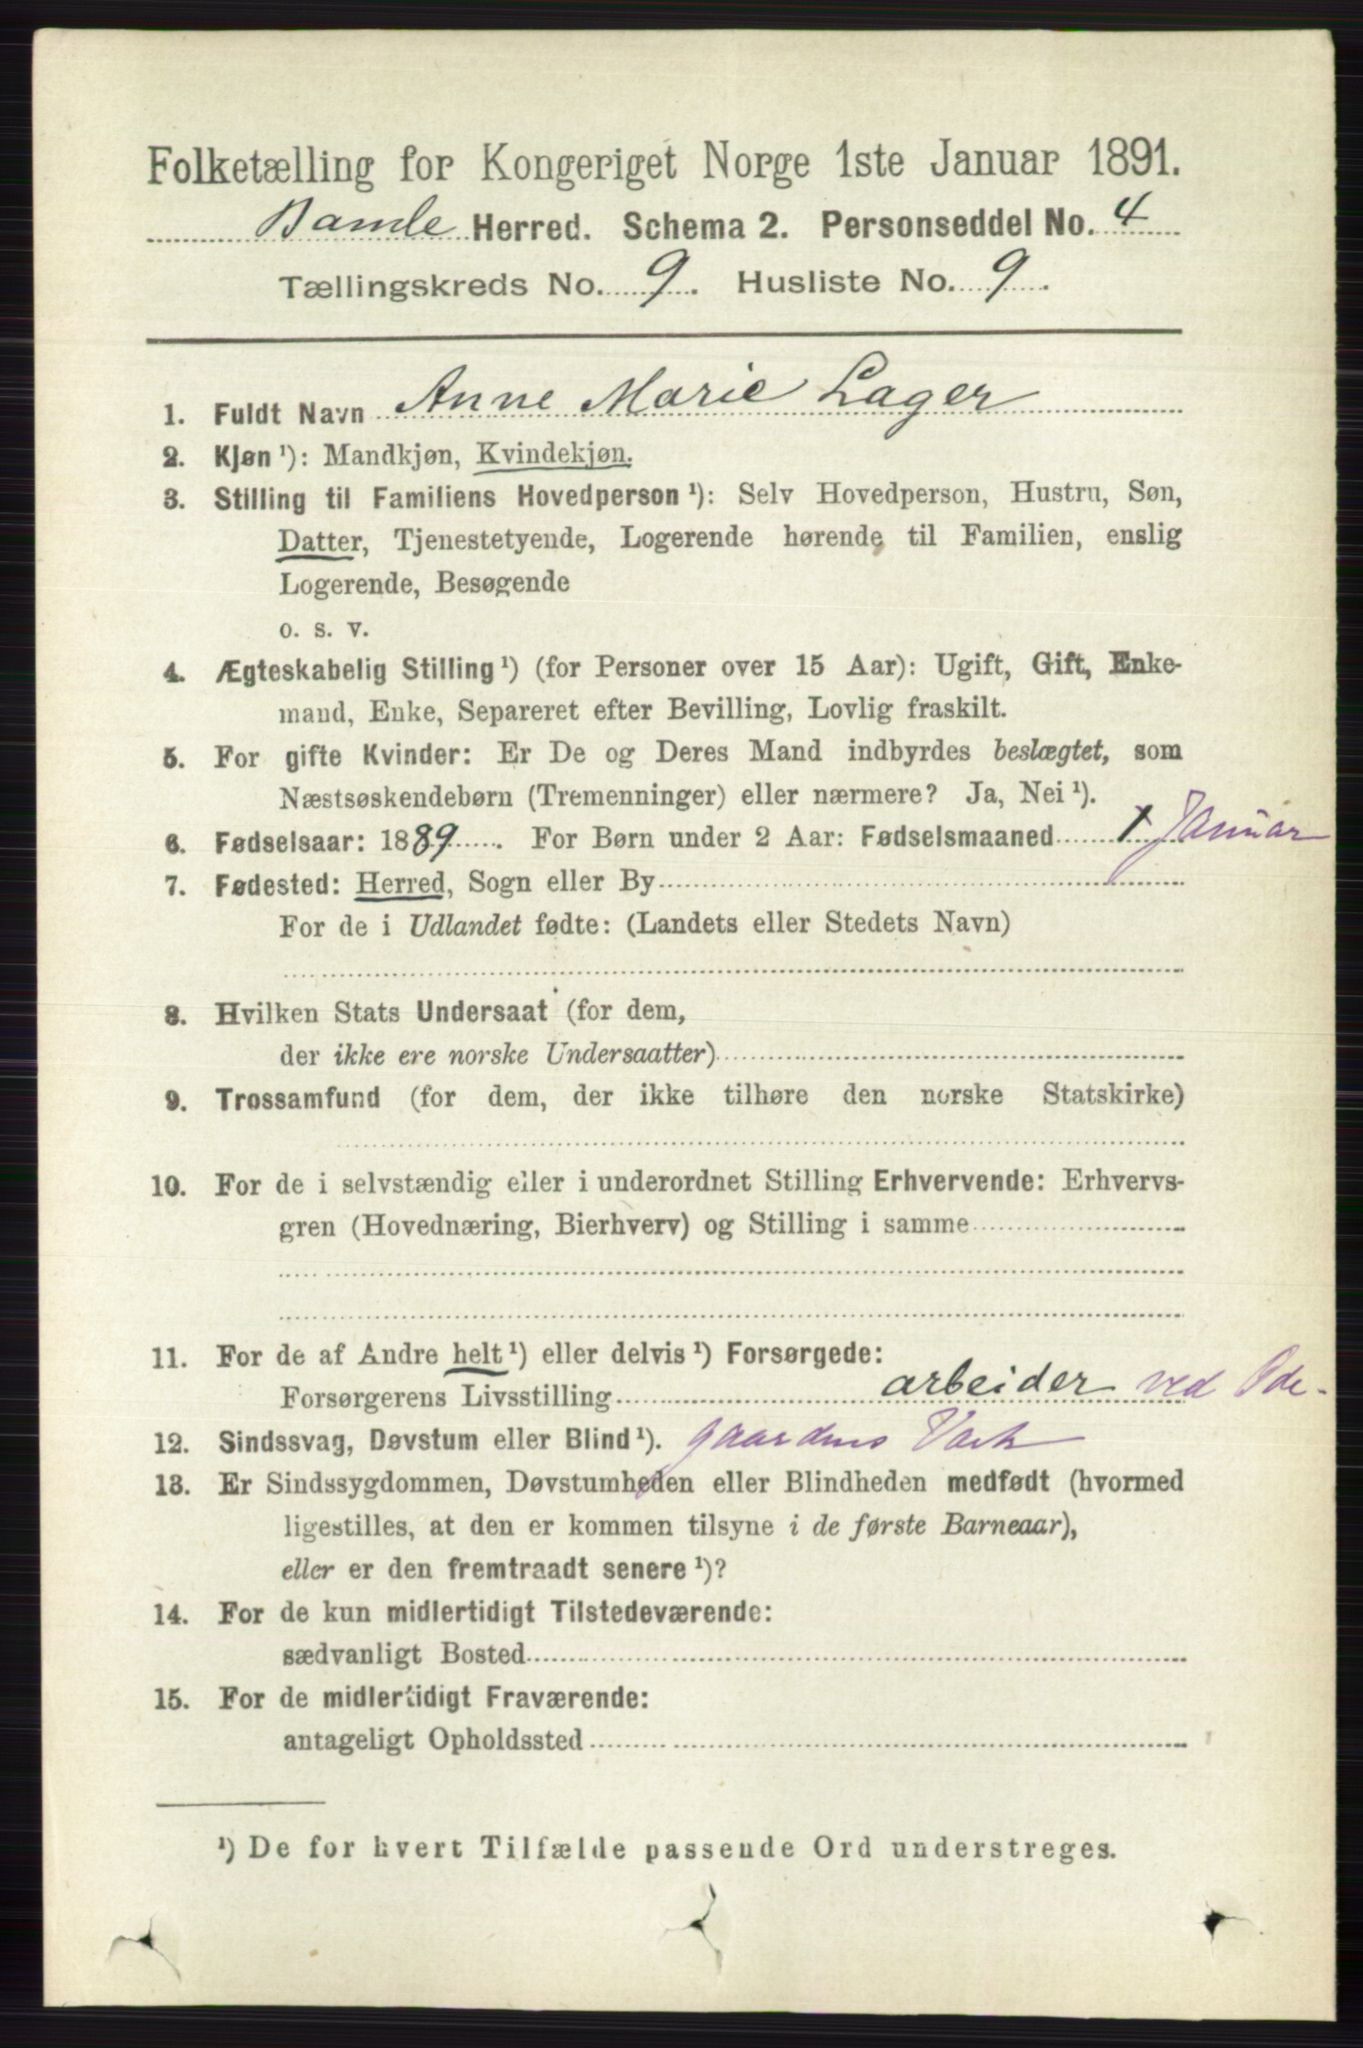 Folketælling for Kongeriget Norge 1ste Januar 1891.
Bamle Herred. Schema 2. Personseddel No. 4
Tællingskreds No. 9. Husliste No. 9.
1. Fuldt Navn Anne Marie Lager
2. Kjøn ¹): Mandkjøn, Kvindekjøn.
3. Stilling til Familiens Hovedperson ¹): Selv Hovedperson, Hustru, Søn,
Datter, Tjenestetyende, Logerende hørende til Familien, enslig
Logerende, Besøgende
o. s. v.
4. Ægteskabelig Stilling ¹) (for Personer over 15 Aar): Ugift, Gift, Enke-
mand, Enke, Separeret efter Bevilling, Lovlig fraskilt.
5. For gifte Kvinder: Er De og Deres Mand indbyrdes beslægtet, som
Næstsøskendebørn (Tremenninger) eller nærmere? Ja, Nei ¹).
6. Fødselsaar: 1889. For Børn under 2 Aar: Fødselsmaaned 1 Januar
7. Fødested: Herred, Sogn eller By
For de i Udlandet fødte: (Landets eller Stedets Navn)
8. Hvilken Stats Undersaat (for dem,
der ikke ere norske Undersaatter)
9. Trossamfund (for dem, der ikke tilhøre den norske Statskirke)
10. For de i selvstændig eller i underordnet Stilling Erhvervende: Erhvervs-
gren (Hovednæring, Bierhverv) og Stilling i samme
11. For de af Andre helt ¹) eller delvis ¹) Forsørgede:
Forsørgerens Livsstilling arbeider ved Øde-
12. Sindssvag, Døvstum eller Blind ¹). gaardens Værk
13. Er Sindssygdommen, Døvstumheden eller Blindheden medfødt (hvormed
ligestilles, at den er kommen tilsyne i de første Barneaar),
eller er den fremtraadt senere ¹)?
14. For de kun midlertidigt Tilstedeværende:
sædvanligt Bosted
15. For de midlertidigt Fraværende:
antageligt Opholdssted
¹) De for hvert Tilfælde passende Ord understreges.